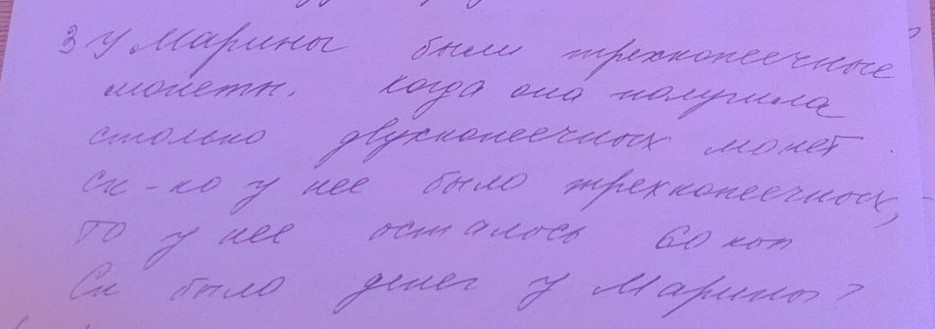 3 У Марины были трехкопеечные
монеты. Когда она получила
столько двухкопеечных монет
ск-ко у нее было трехкопеечных,
то у нее осталось 60 коп
Ск было денег у Марины?